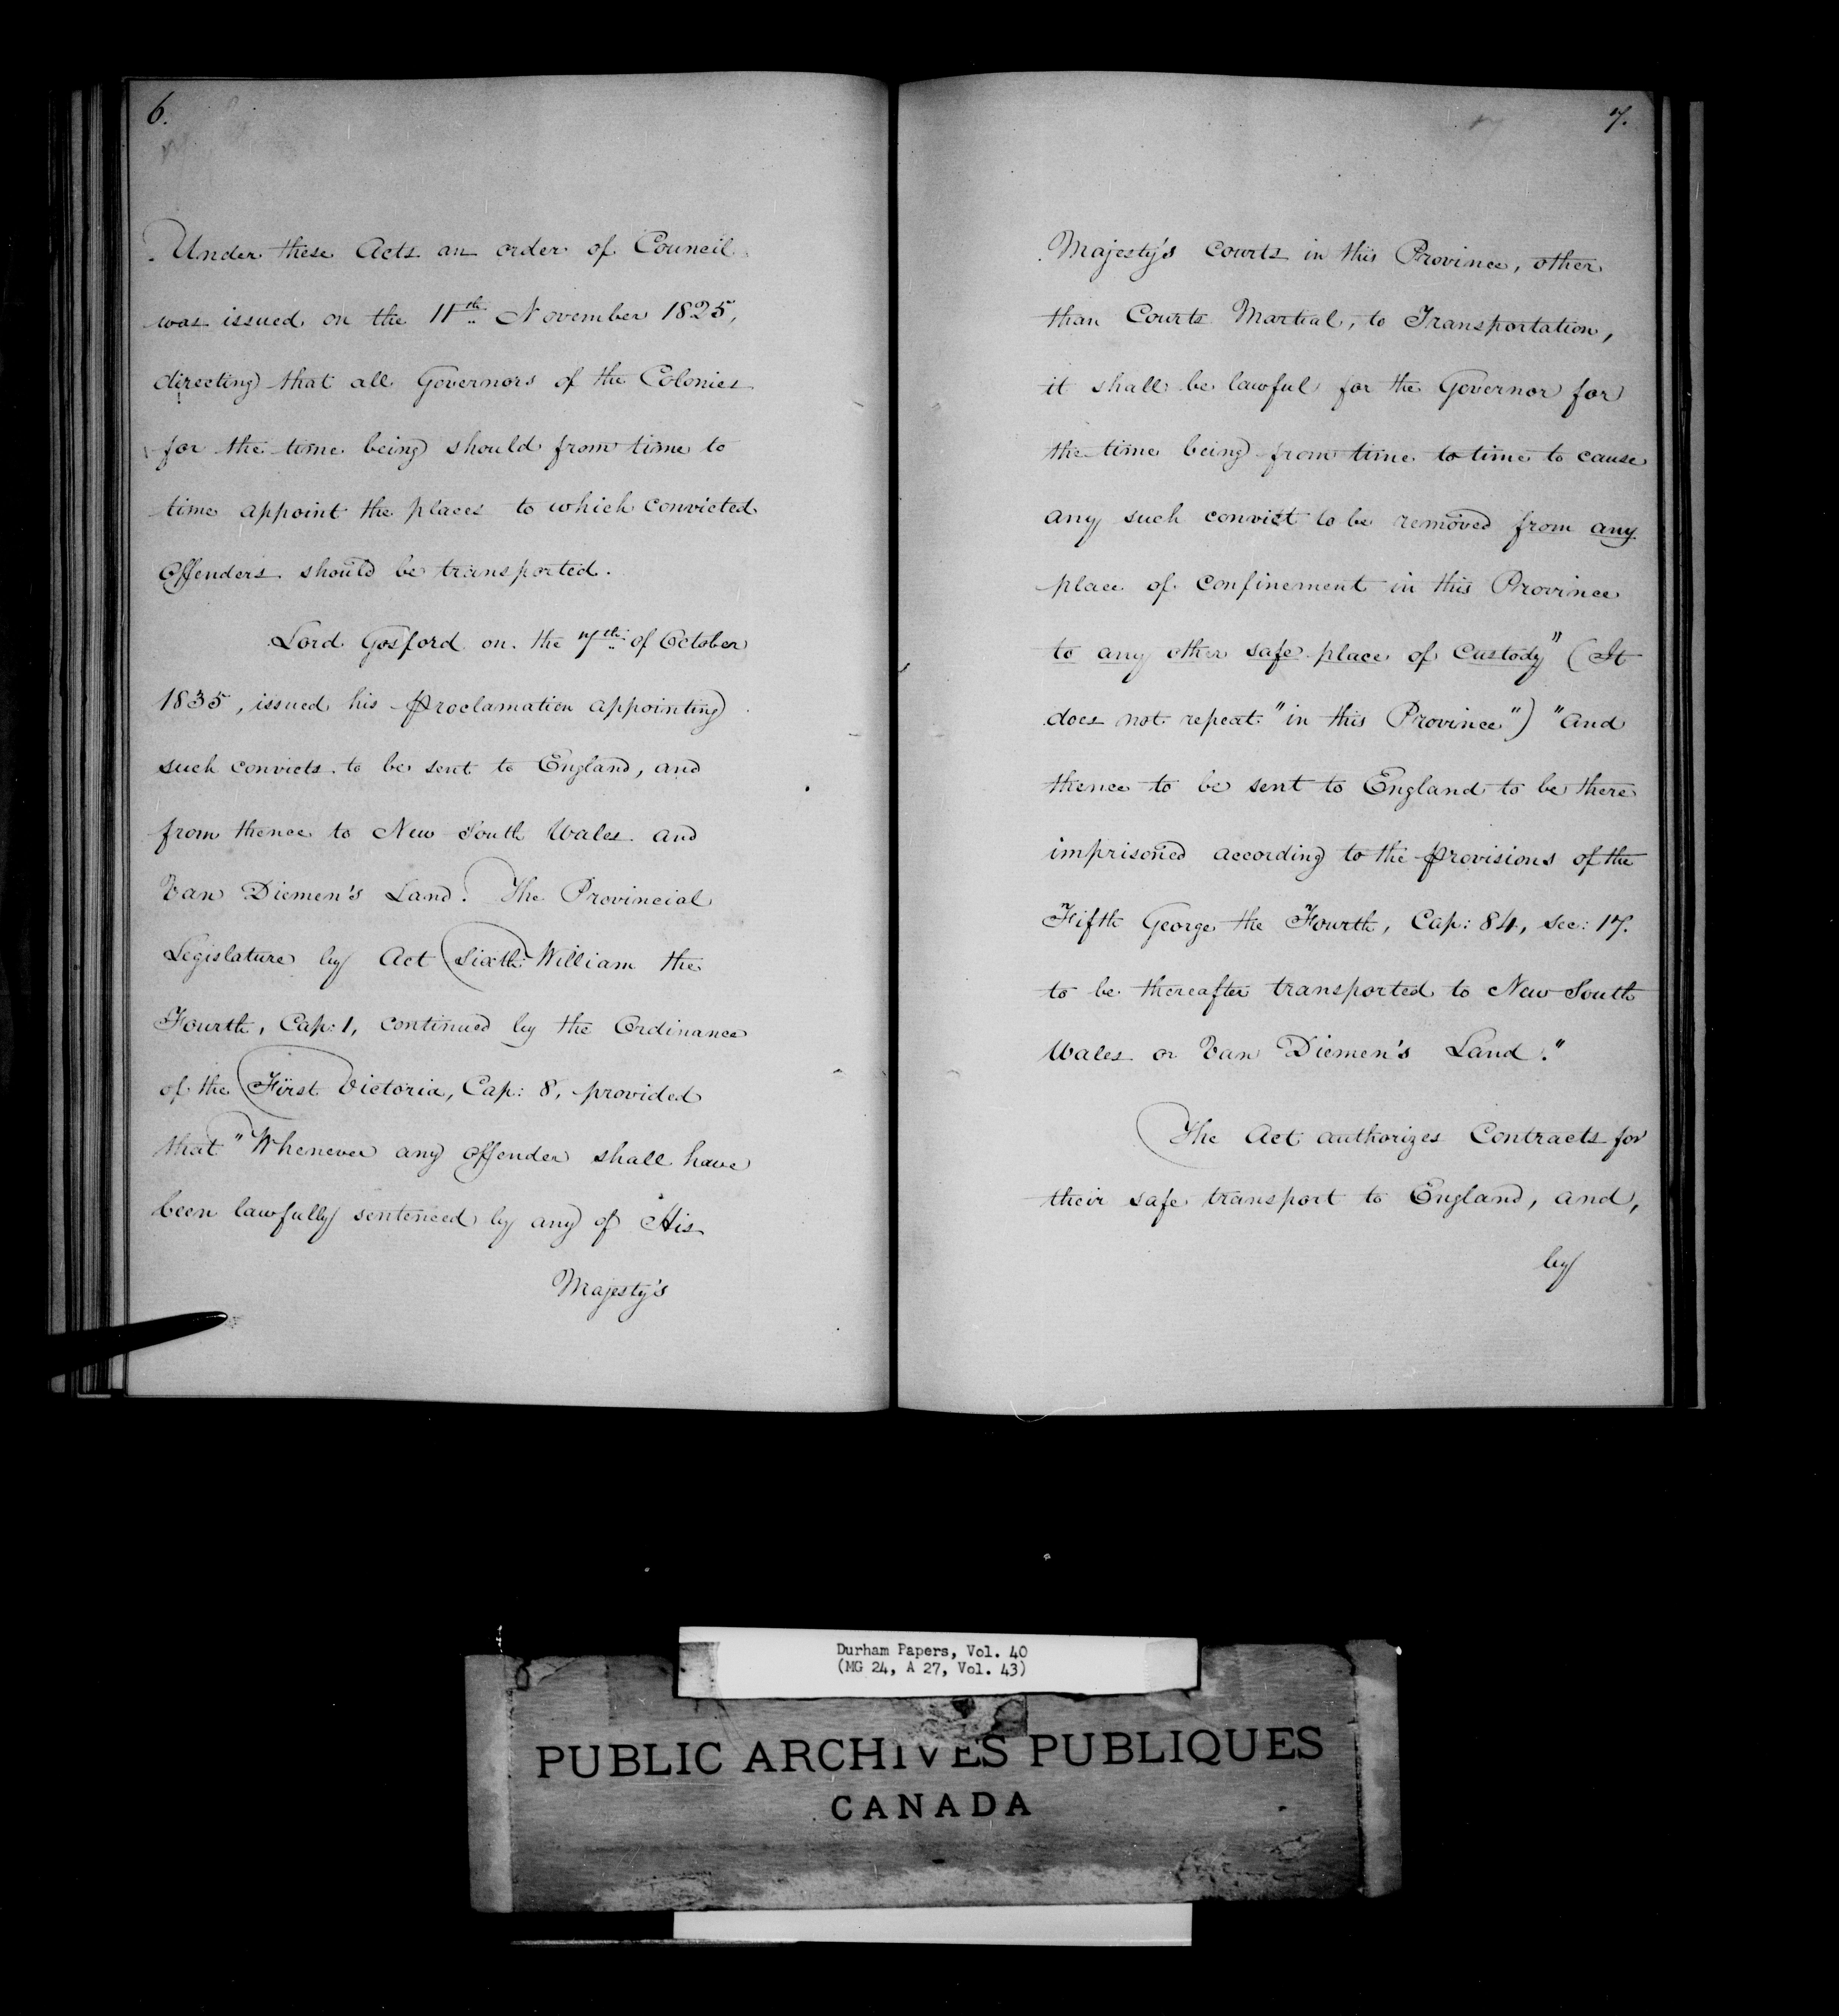 6.
Under these Acts an order of Council
was issued on the 11th November 1825,
directing that all Governors of the Colonies
for the time being should from time to
time appoint the places to which convicted
Offenders should be transported.
Lord Gosford on the 7th of October
1835, issued his Proclamation appointing
such convicts to be sent to England, and
from thence to New South Wales and
Van Diemen's Land. The Provincial
Legislature by Act Sixth William the
Fourth, Cap: 1, continued by the Ordinance
of the First Victoria, Cap: 8, provided
that "Whenever any offender shall have
been lawfully sentenced by any of His
Majesty's
7.
Majesty's Courts in this Province, other
than Courts Martial, to Transportation,
it shall be lawful for the Governor for
the time being from time to time to cause
any such convict to be removed from any
place of confinement in this Province
to any other safe place of custody" (It
does not repeat "in this Province") "and
thence to be sent to England to be there
imprisoned according to the provisions of the
Fifth George the Fourth, Cap: 84, sec: 17.
to be thereafter transported to New South
Wales or Van Diemen's Land."
The Act authorizes Contracts for
their safe transport to England, and,
by
Durham Papers, Vol. 40
(MG 24, A 27, Vol. 43)
PUBLIC ARCHIVES PUBLIQUES
CANADA